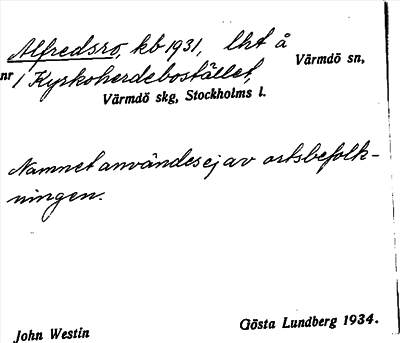 Alfredsro, kb 1931, lht å Värmdö sn,
nr 1 Kyrkoherdebostället,
Värmdö skg, Stockholms l.
Namnet användes ej av ortsbefolk-
ningen.
John Westin Gösta Lundberg 1934.